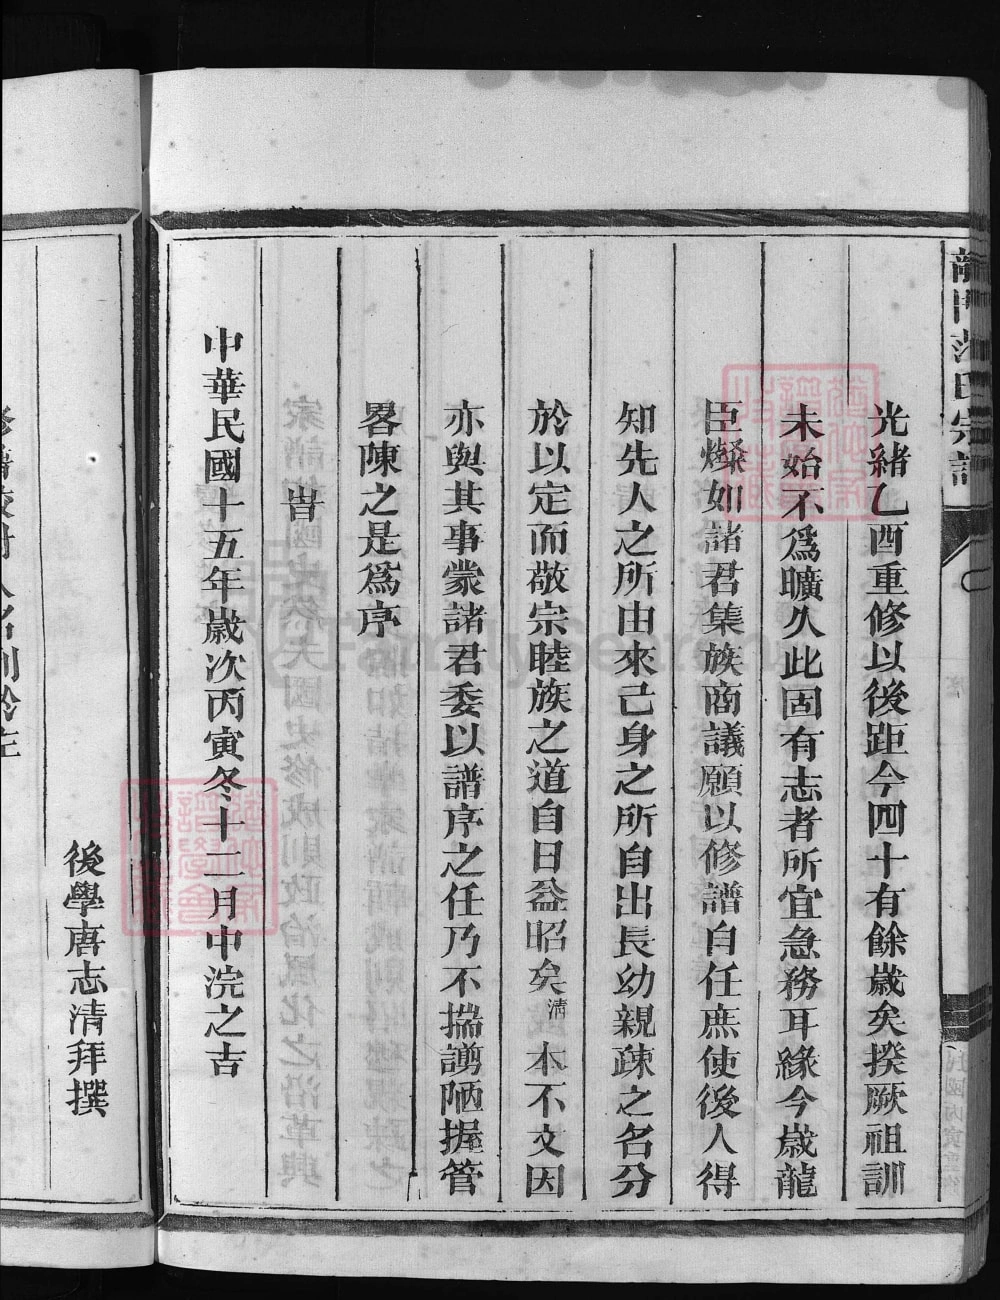 光緒乙酉重修以後距今四十有餘歲矣揆厥祖訓
未始不爲曠久此固有志者所宜急務耳緣今歲龍
臣燦如諸君集族商議願以修譜自任庶使後人得
知先人之所由來己身之所自出長幼親疎之名分
於以定而敬宗睦族之道自日益昭矣清本不文因
亦與其事蒙諸君委以譜序之任乃不揣譾陋握管
畧陳之是爲序
旹
中華民國十五年歲次丙寅冬十二月中浣之吉
後學唐志清拜撰